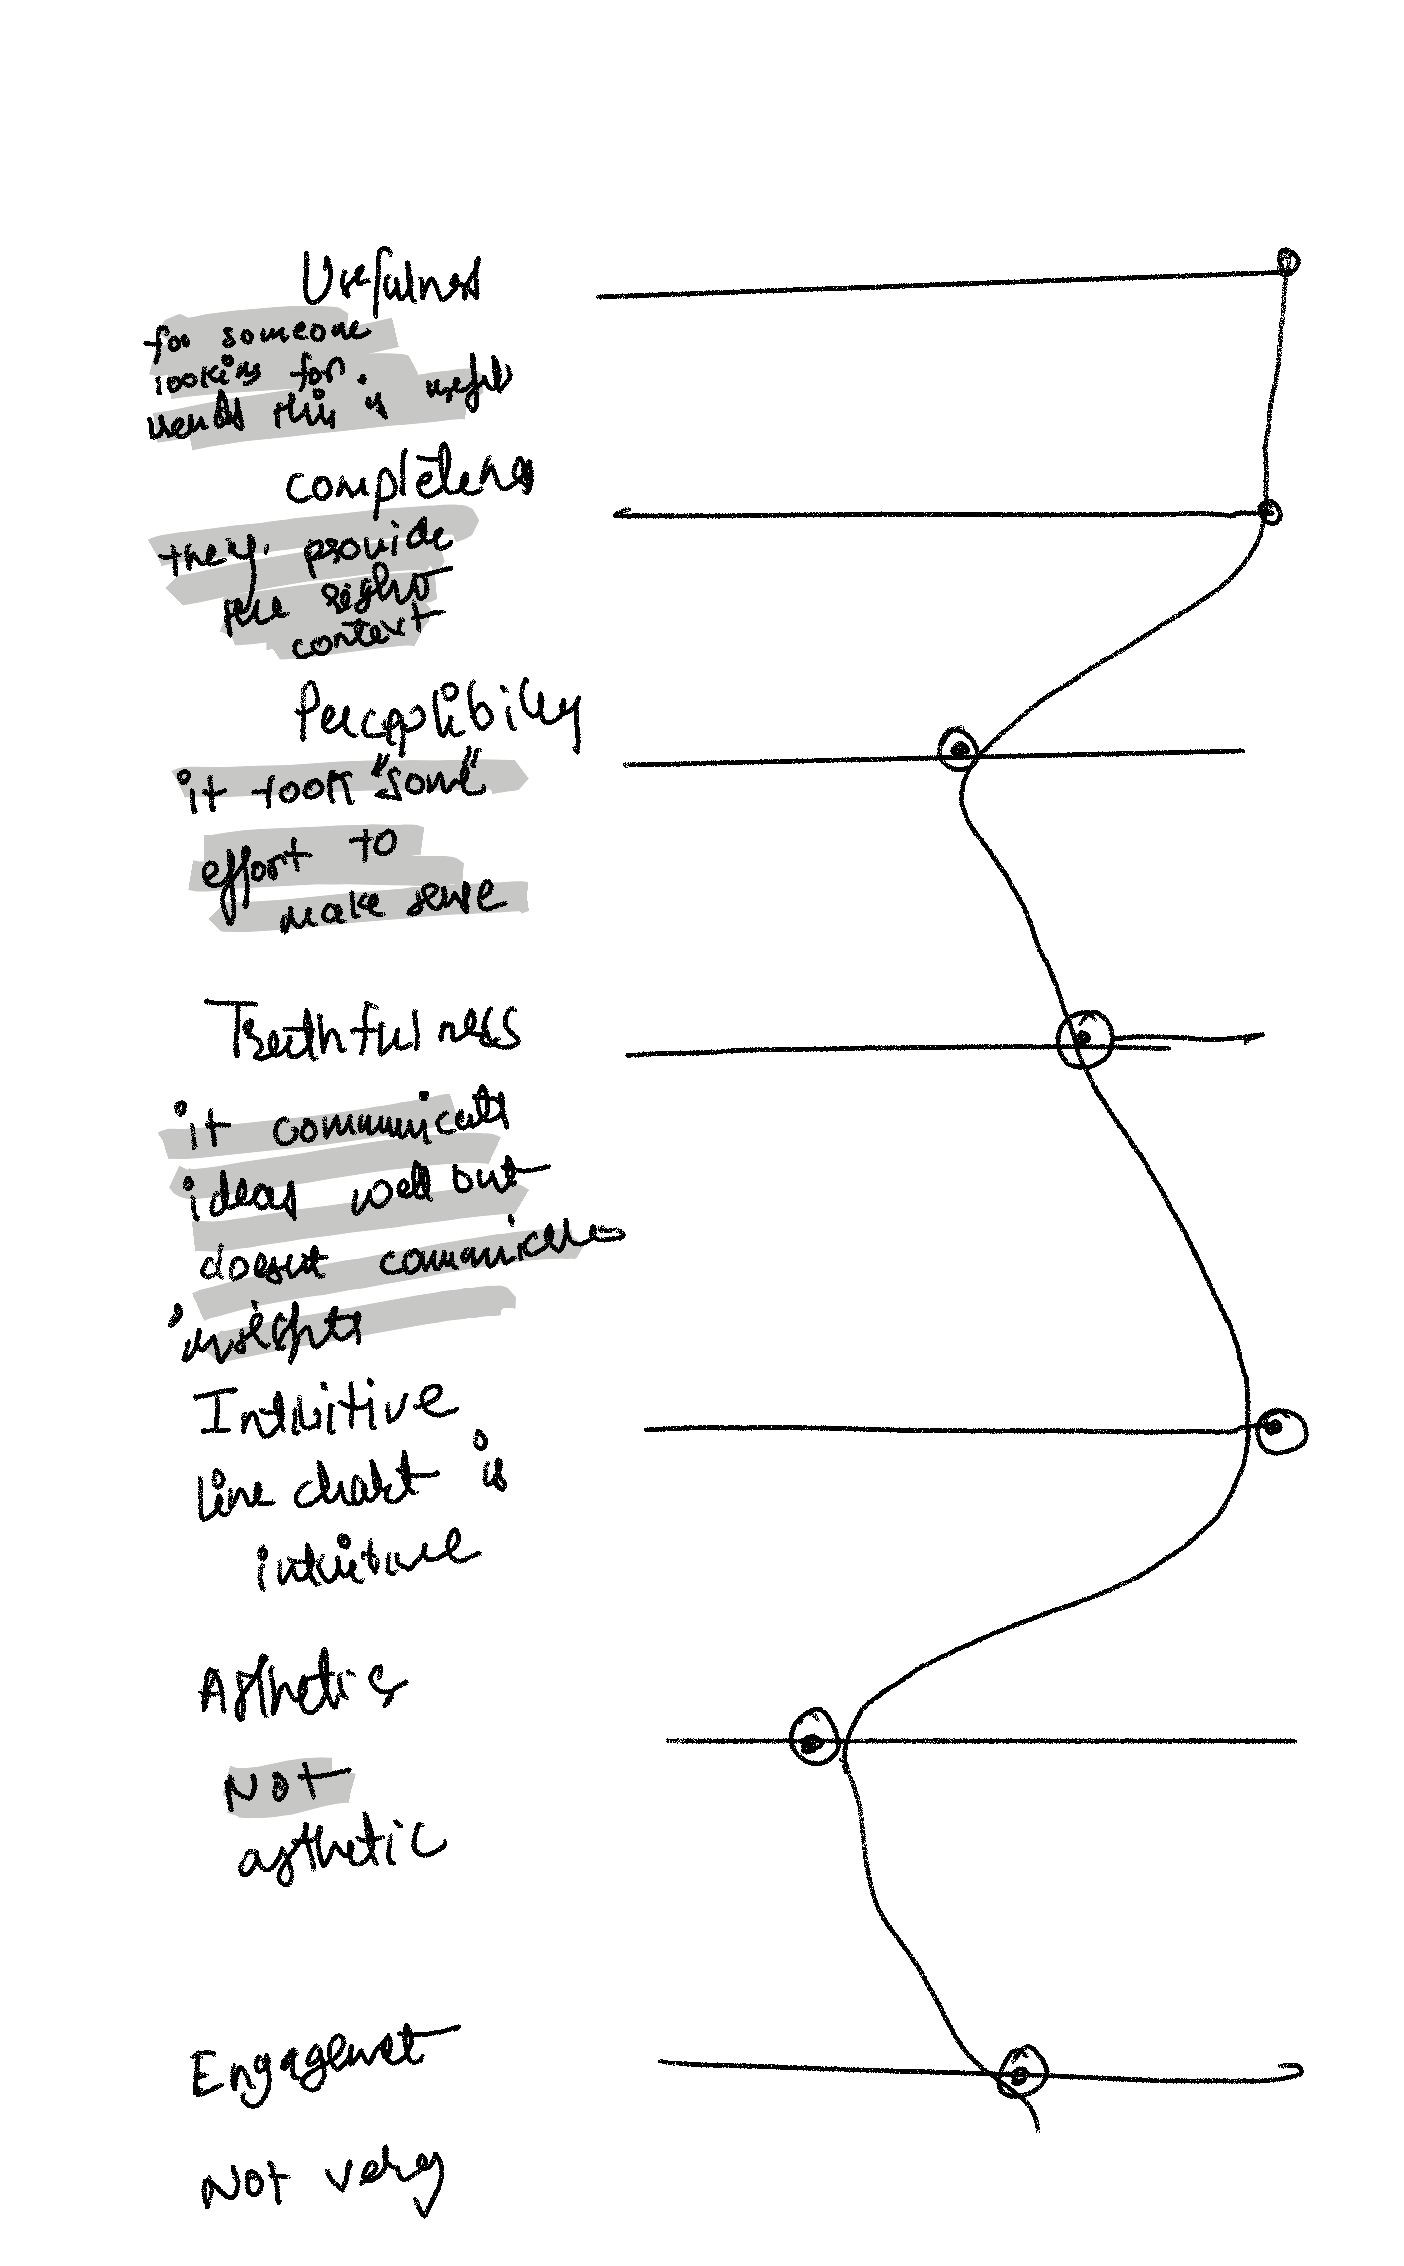 Usefulness
for someone
looking for
trends this is useful
completeness
they provide
the right
context
Perceptibility
it took "some"
effort to
make sense
Truthfulness
it communicates
ideas well but
doesnt communicate
insights
Intuitive
line chart is
intuitive
Asthetics
Not
asthetic
Engagement
Not very